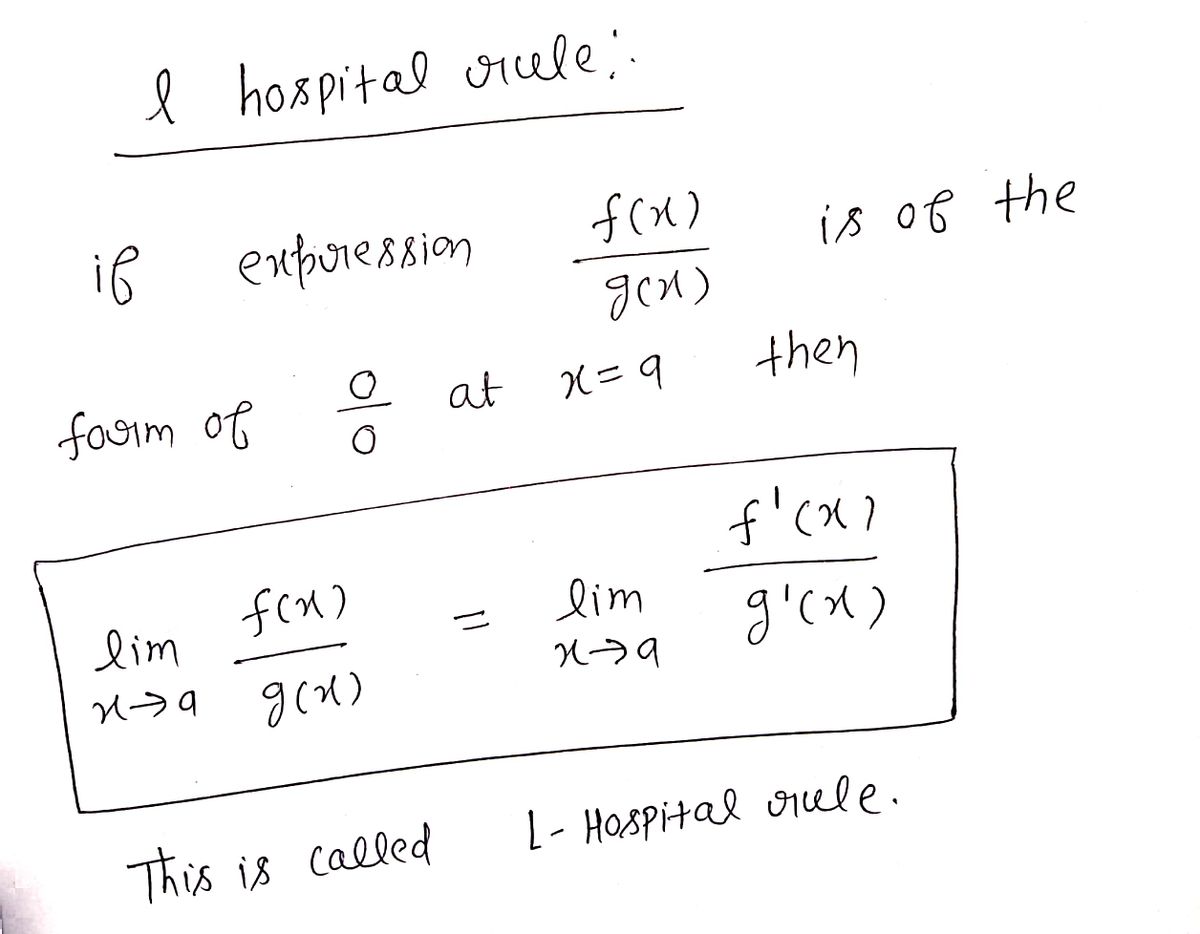 l hospital rule:
if expression f(x)/g(x) is of the
form of 0/0 at x=a then
lim x→a f(x)/g(x) = lim x→a f'(x)/g'(x)
This is called L-Hospital rule.